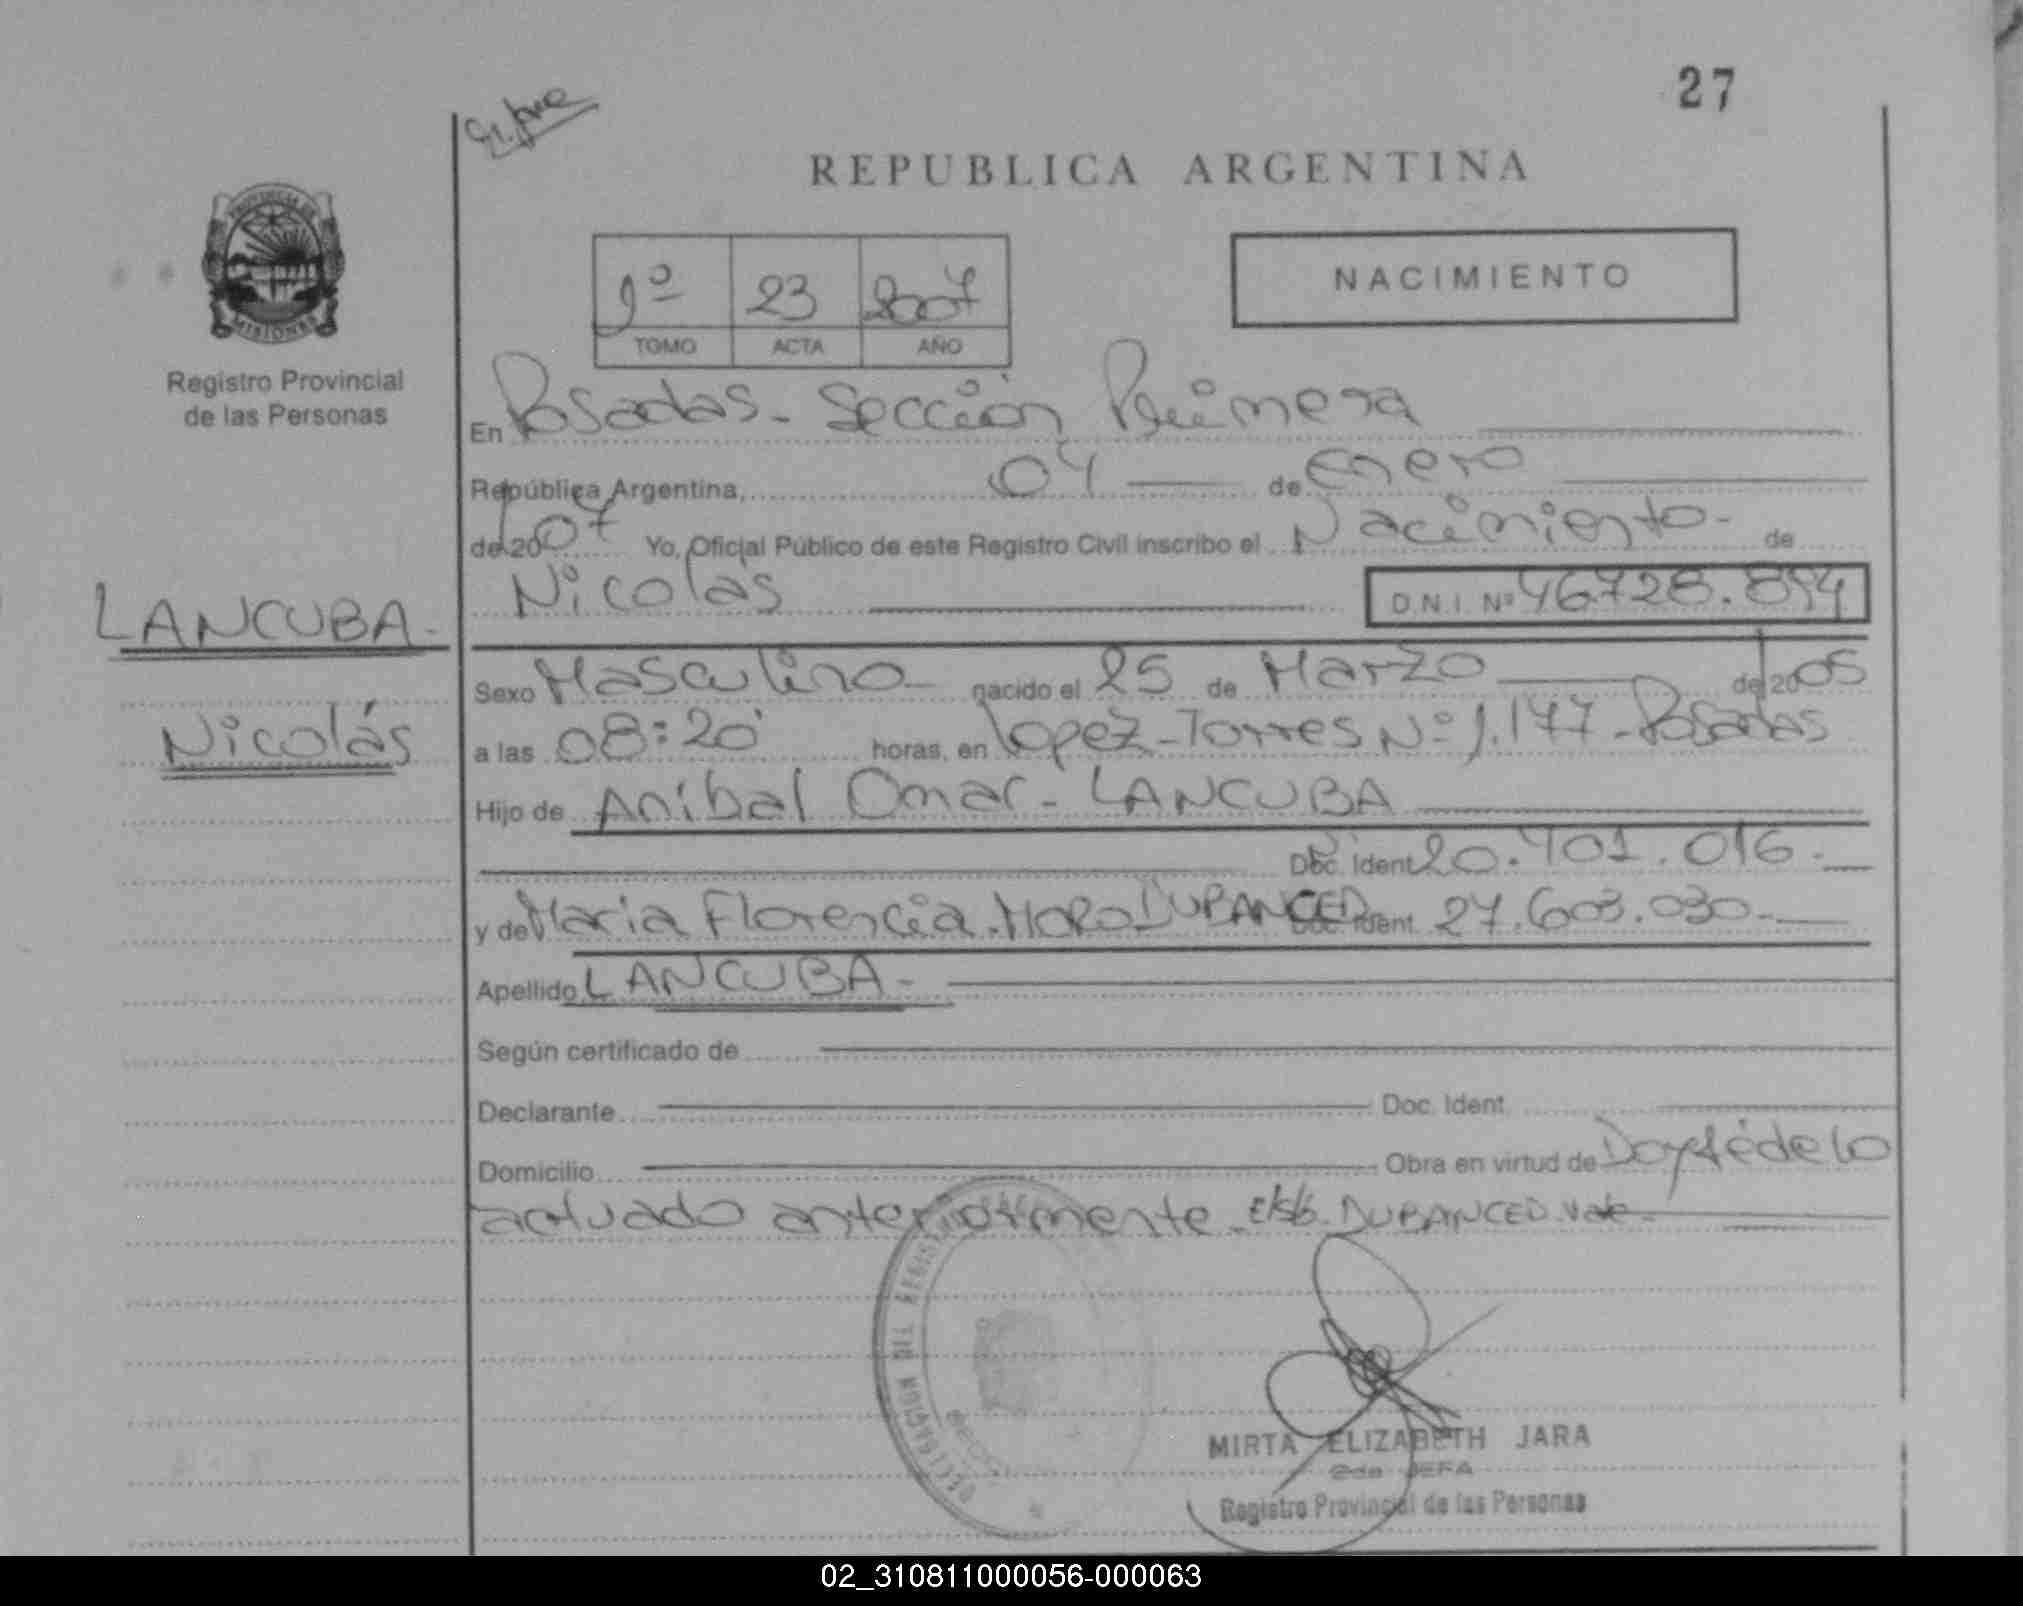 27
REPUBLICA ARGENTINA
PROVINCIA DE
MISIONES
Registro Provincial
de las Personas
1º 23 2007
TOMO ACTA AÑO
NACIMIENTO
En Posadas - Sección Primera
República Argentina, 04 de Enero
de 2007 Yo, Oficial Público de este Registro Civil inscribo el Nacimiento - de
Nicolás D.N.I. Nº 46.728.894
LANCUBA -
Nicolás
Sexo Masculino - nacido el 25 de Marzo de 2005
a las 08:20' horas, en Lopez - Torres Nº 1.177 - Posadas
Hijo de Anibal Omar - LANCUBA
Doc. Ident 20.401.016 -
y de Maria Florencia - MORO DUBANCED Doc. Ident. 27.603.030 -
Apellido LANCUBA -
Según certificado de
Declarante Doc. Ident.
Domicilio Obra en virtud de Doy fé de lo
actuado anteriormente - DUBANCED. Vale -
MIRTA ELIZABETH JARA
2da JEFA
Registro Provincial de las Personas
02_310811000056-000063